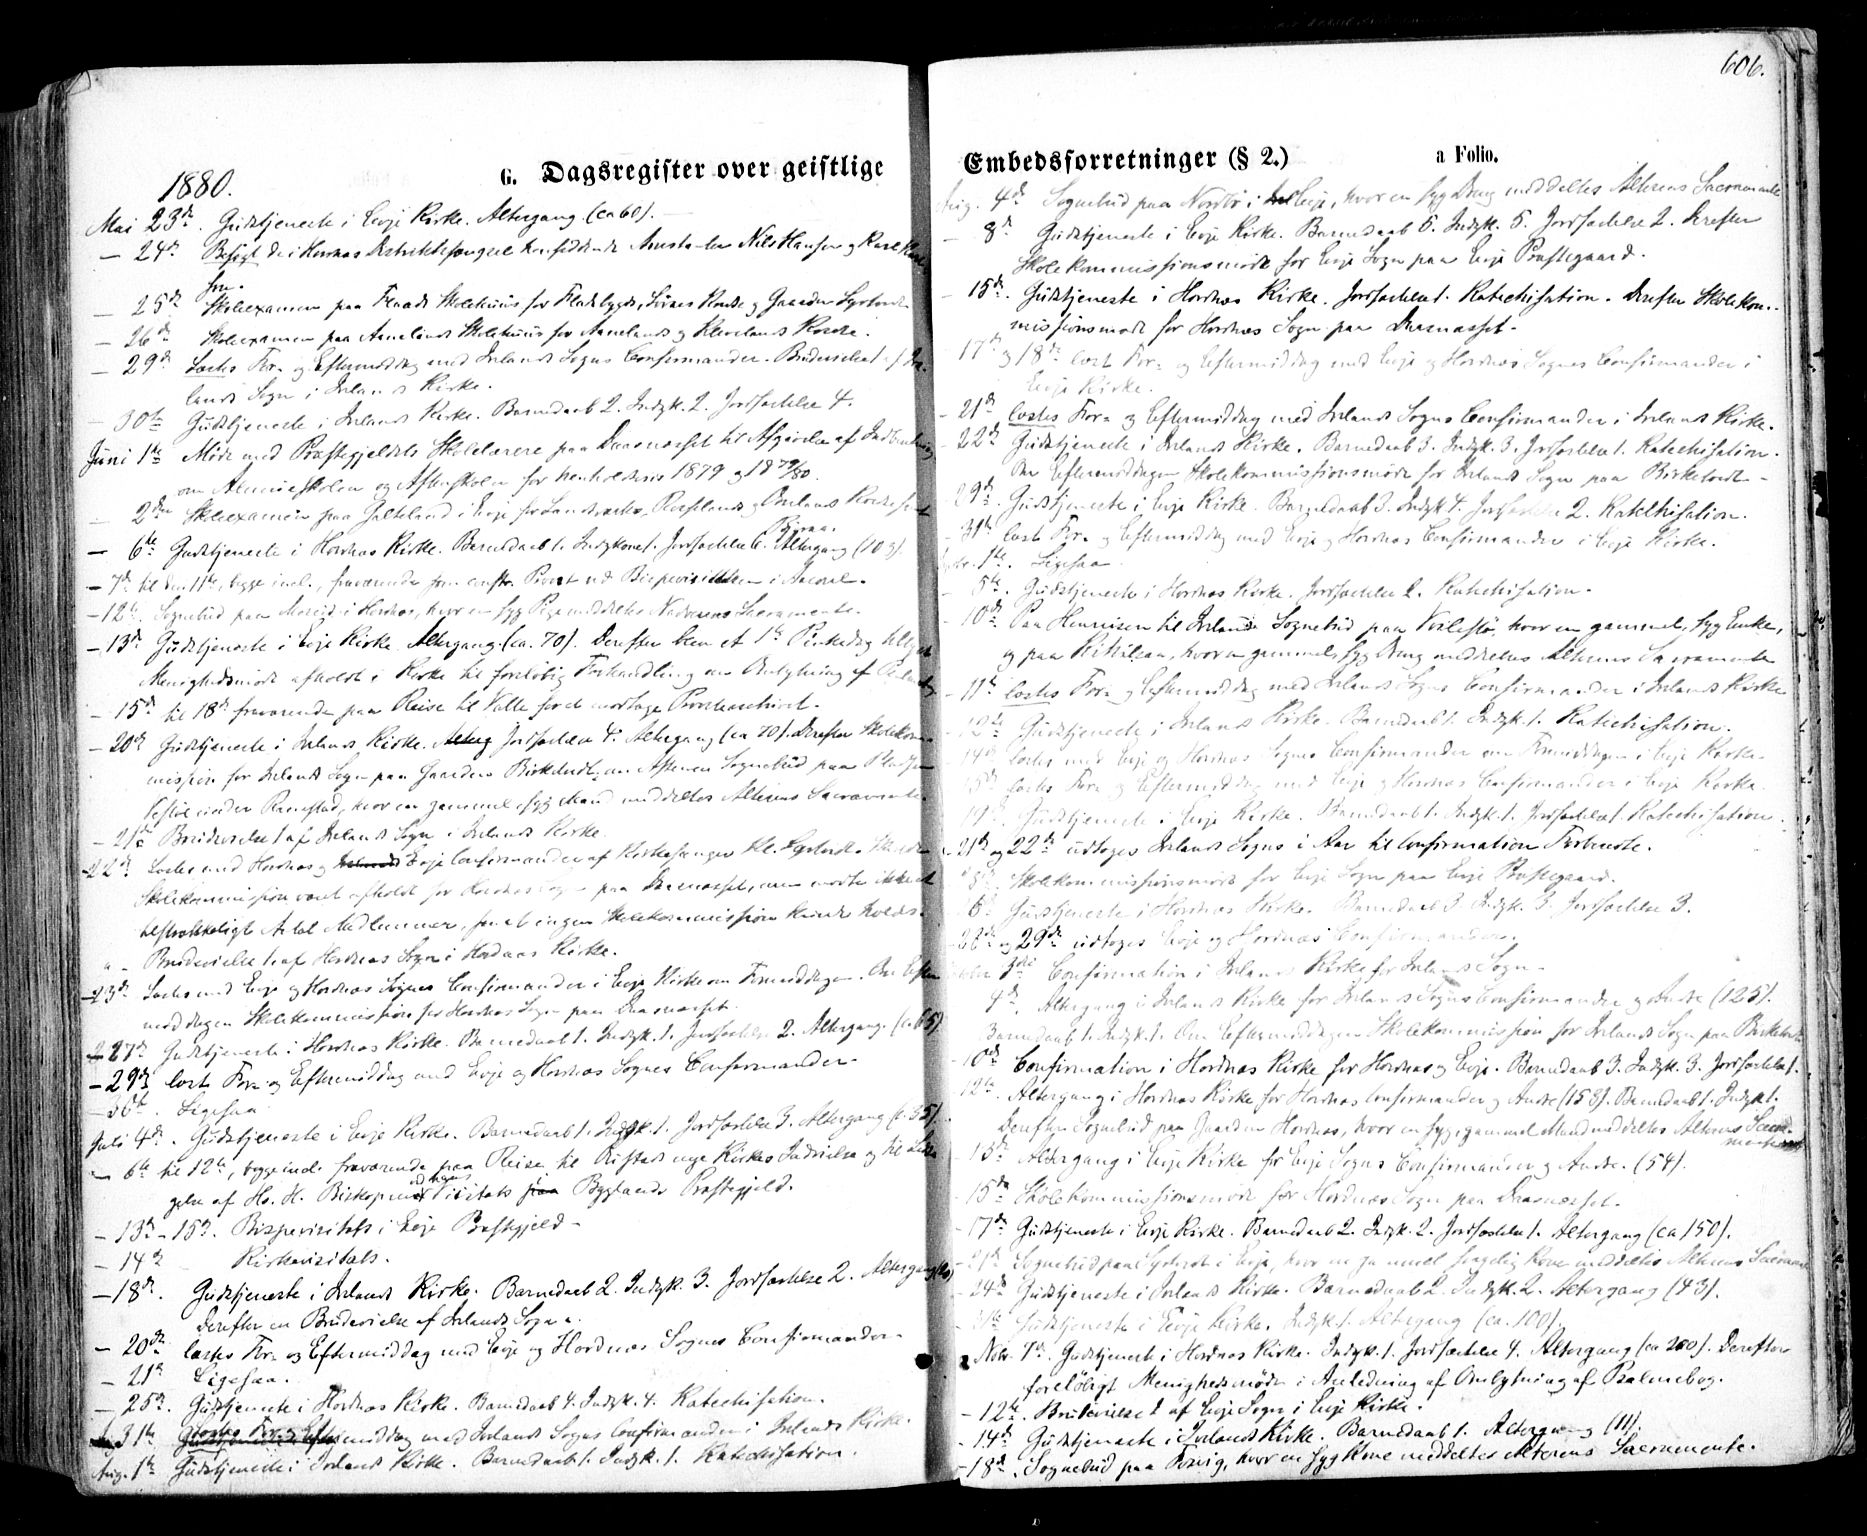 1880.
G. Dagsregister over geistlige
Mai 23de. Gudstjeneste i Evje Kirke. Altergang (ca 60).
— 24de Besøgt de i Hornnæs Distriktsfængsel hensiddende Arrestanter Nils Hansen og Karl
sen.
— 25de Skoleexamen paa Flaads Skolehuus for Flaadebygds, Kreds og Gaarden
— 26de Skoleexamen paa Amelands Skolehuus for Amelands og Kreds.
— 29de Læstes For- og Eftermiddag med Ivelands Sogns Confirmander. Brudevielse 1 af Ive-
lands Sogn i Ivelands Kirke.
— 30te Gudstjeneste i Ivelands Kirke. Barnedaab 2. Indgk. 2. Jordfæstelse 4.
Juni 1ste Møde med Præstegjeldets Skolelærere paa Daasnæsset til Afgivelse af Indberetning
om Almueskolen og Aftenskolen for henholdsvis 1879 og 1879/80.
— 2den Skoleexamen paa Galteland i Evje for
— 6te Gudstjeneste i Hornnæs Kirke. Barnedaab 1. Indgkone 1. Jordfæstelse 6. Altergang (103).
— 7de til den 11te, begge incl., fraværende som const. Provst ved Bispevisitatsen i
— 12te. Sognebud paa i Hornnæs, hvor en syg Pige meddeltes Nadverens Sacramente.
— 13de Gudstjeneste i Evje Kirke. Altergang (ca. 70). Derefter
Menighedsmøde afholdt i Kirke til foreløbig Forhandling om Ombytning af
— 15de til 18de fraværende paa Reise til Valle for at modtage Provstearchivet.
— 20de Gudstjeneste i Ivelands Kirke. Jordfæstelse 4. Altergang (ca 70). Derefter Skolekom-
mission for Ivelands Sogn paa Gaarden Birketvedt, om Aftenen Sognebud paa Pladsen
under Ramstad, hvor en gammel syg Mand meddeltes Alterens Sacramente.
— 21de Brudevielse 1 af Ivelands Sogn i Ivelands Kirke.
— 22de Læstes med Hornnæs og Evje Confirmander af Kirkesanger
Skolekommission var afholdt for Hornnæs Sogn paa Daasnæsset, men mødte ikke et
tilstrækkeligt Antal Medlemmer, saa at ingen Skolekommission kunde holdes.
Brudevielse 1 af Hornnæs Sogn i Hornnæs Kirke.
— 23de Læstes med Evje og Hornnæs Sognes Confirmander i Evje Kirke om Formiddagen. Om Efter-
middagen Skolekommission for Hornnæs Sogn paa Daasnæsset.
— 27de Gudstjeneste i Hornnæs Kirke. Barnedaab 1. Indgk. 1. Jordfæstelse 2. Altergang. (ca 65)
— 29de læst For- og Eftermiddag med Evje og Hornnæs Sognes Confirmander.
— 30te. Ligesaa
Juli 4de. Gudstjeneste i Evje Kirke. Barnedaab 1. Indgk. 1. Jordfæstelse 3. Altergang (c. 35).
— 6te til 12te, begge incl. fraværende paa Reise til nye Kirkes Indvielse og til
gelse af Hs. H. Biskopen ved hans Visitats Byglands Præstegjeld.
— 13de - 15de. Bispevisitats i Evje Præstegjeld —
— 14de Kirkevisitats.
— 18de. Gudstjeneste i Ivelands Kirke. Barnedaab 2. Indgk. 3. Jordfæstelse 2. Altergang
Derefter en Brudevielse af Ivelands Sogn.
— 20de læstes For- og Eftermiddag med Evje og Hornnæs Sognes Confirmander.
— 21de Ligesaa.
— 25de. Gudstjeneste i Hornnæs Kirke. Barnedaab 4. Indgk. 4. Katechisation.
31te læstes For- og Eftermiddag med Ivelands Sogns Confirmander i Ivelands Kirke.
Aug. 1ste Gudstjeneste i Ivelands Kirke. Barnedaab 1. Indgk. 1. Katechisation
606.
Embedsforretninger (§ 2.) a Folio.
Aug. 4de Sognebud paa i Evje, hvor en syg Dreng meddeltes Alterens Sacramente
— 8de Gudstjeneste i Evje Kirke. Barnedaab 5. Indgk. 5. Jordfæstelse 2. Derefter
Skolekommissionsmøde for Evje Sogn paa Evje Præstegaard.
— 15de. Gudstjeneste i Hornnæs Kirke. Jordfæstelse 1. Katechisation. Derefter Skolekom-
missionsmøde for Hornnæs Sogn paa Daasnæsset.
17de og 18de læst For- og Eftermiddag med Evje og Hornnæs Sognes Confirmander i
Evje Kirke.
— 21de læstes For- og Eftermiddag med Ivelands Sogns Confirmander i Ivelands Kirke.
— 22de Gudstjeneste i Ivelands Kirke. Barnedaab 3. Indgk. 3. Jordfæstelse 1. Katechisation.
Om Eftermiddagen Skolekommissionsmøde for Ivelands Sogn paa Birketvedt.
29de Gudstjeneste i Evje Kirke. Barnedaab 3. Indgk 4. Jordfæstelse 2. Katechisation.
31te læst For- og Eftermiddag med Evje og Hornnæs Confirmander i Evje Kirke.
1ste. Ligesaa
5te. Gudstjeneste i Hornnæs Kirke. Jordfæstelse 2. Katechisation.
— 10de Paa Henreisen til Iveland Sognebud paa hvor en gammel, syg Enke,
og paa hvor en gammel, syg Dreng meddeltes Alterens Sacramente
— 11te læstes For- og Eftermiddag med Ivelands Sogns Confirmander i Ivelands Kirke
— 12te Gudstjeneste i Ivelands Kirke. Barnedaab 1. Indgk. 1. Katechisation.
14de læstes med Evje og Hornnæs Sognes Confirmander om Formiddagen i Evje Kirke
15de læstes For- og Eftermiddag med Evje og Hornnæs Confirmander i Evje Kirke.
19de. Gudstjeneste i Evje Kirke. Barnedaab 1. Indgk. 1. Jordfæstelse 1. Katechisation.
— 21de og 22de udtoges Ivelands Sogns i Aar til Confirmation Forberedte.
Skolekommissionsmøde for Evje Sogn paa Evje Præstegaard.
26de Gudstjeneste i Hornnæs Kirke. Barnedaab 3 Indgk. 3. Jordfæstelse 3.
28de og 29de udtoges Evje og Hornnæs Confirmander.
3die Confirmation i Ivelands Kirke for Ivelands Sogn.
4de. Altergang i Ivelands Kirke for Ivelands Sogns Confirmander og Andre (125).
Barnedaab 1. Indgk. 1. Om Eftermiddagen Skolekommission for Ivelands Sogn paa Birketvedt
10de Confirmation i Hornnæs Kirke for Hornnæs og Evje. Barnedaab 3. Indgk. 3. Jordfæstelse 1.
12te. Altergang i Hornnæs Kirke for Hornnæs Confirmander og Andre (153). Barnedaab 1. Indgk 1.
Derefter Sognebud paa Gaarden Hornnæs, hvor en syg, gammel Mand meddeltes Alterens Sacra-
mente
— 13de Altergang i Evje Kirke for Evje Sogns Confirmander og Andre. (54).
15de Skolekommissionsmøde for Hornnæs Sogn paa Daasnæsset.
— 17de Gudstjeneste i Evje Kirke. Barnedaab 2. Indgk. 2. Jordfæstelse 1. Altergang (ca 150).
— 21de Sognebud paa i Evje, hvor en gammel Kone meddeltes Alterens Sacramente
— 24de Gudstjeneste i Ivelands Kirke. Barnedaab 2 Indgk. 2. Altergang (43).
31te Gudstjeneste i Evje Kirke. Indgk. 1 Altergang (ca. 100).
Novbr. 7de. Gudstjeneste i Hornnæs Kirke. Indgk. 1. Jordfæstelse 4. Altergang (ca 200). Derefter
foreløbigt Menighedsmøde i Anledning af Ombytning af Psalmebog.
— 12te. Brudevielse 1 af Evje Sogn i Evje Kirke.
— 14de Gudstjeneste i Ivelands Kirke. Barnedaab 1. Altergang (11).
— 18de. Sognebud paa hvor en syg Kone meddeltes Alterens Sacramente.